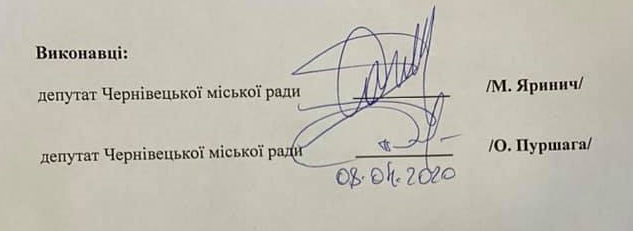 Виконавці:
депутат Чернівецької міської ради /М. Яринич/
депутат Чернівецької міської ради /О. Пуршага/
08.04.2020